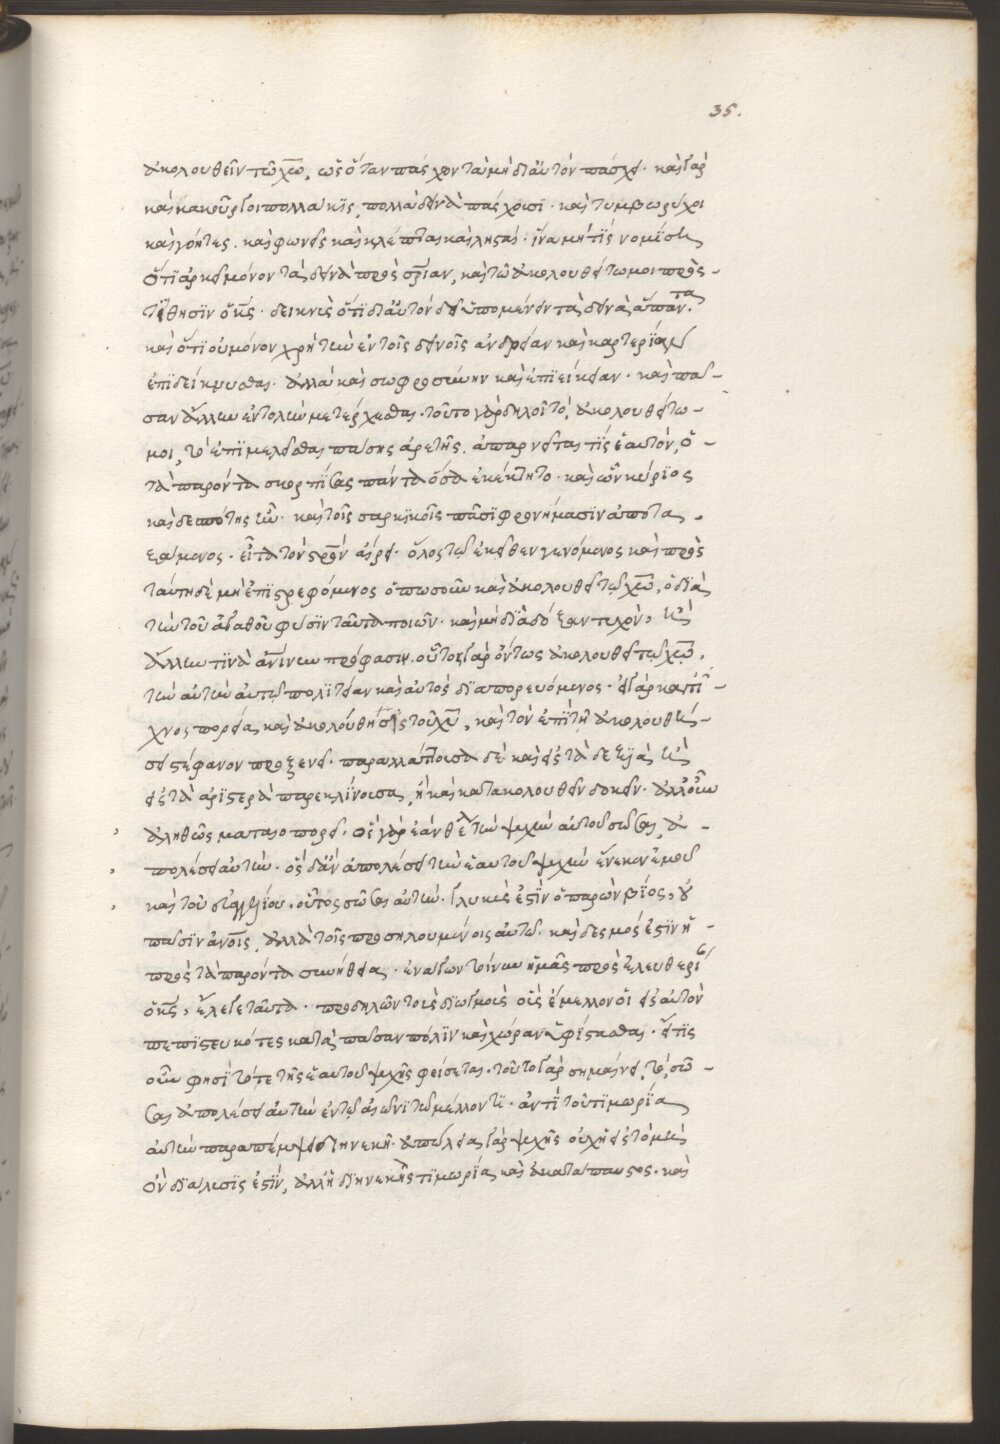 35.
ἀκολουθεῖν τῷ χῶ, ὡς ὅταν πάσχοντα μὴ δι αὐτὸν πάσχει· καὶ γὰρ
καὶ κακοῦργοι πολλάκις, πολλὰ δεινὰ πάσχουσι· καὶ τυμβωρύχοι
καὶ γόητες. καὶ φωνεῖς καὶ κλέπται καὶ λησταί· ἵνα μή τις νομίσῃ
ὅτι ἀρκεῖ μόνον τὰ δεινὰ πρὸς σρίαν, καὶ τῶ ἀκολουθείτω μοι προσ-
τίθησιν ὁ κς· δεικνὺς ὅτι δι αὐτὸν δεῖ ὑπομένειν τὰ δεινὰ ἅπαντα.
καὶ ὅτι οὐ μόνον χρὴ τὴν ἐν τοῖς δεινοῖς ἀνδρείαν καὶ καρτερίαν
ἐπιδείκνυσθαι· ἀλλὰ καὶ σωφροσύνην καὶ ἐπιείκειαν· καὶ πᾶ-
σαν ἄλλην ἐντολὴν μετέρχεσθαι· τοῦτο γὰρ δηλοῖ τὸ, ἀκολουθείτω
μοι, τὸ ἐπιμελεῖσθαι πάσης ἀρετῆς. ἀπαρνεῖται τίς ἑαυτόν, ὁ
τὰ παρόντα σκορπίσας πάντα ὅσα ἐκέκτητο· καὶ ὧν κύριος
καὶ δεσπότης ἦν· καὶ τοῖς σαρκικοῖς πᾶσι φρονήμασιν ἀποτα-
ξάμενος· εἶτα τὸν σρὸν αἴρει· ὅλος τῶ ἐκεῖθεν γενόμενος καὶ πρὸς
ταύτῃ δὲ μὴ ἐπιστρεφόμενος ὁπωσοῦν καὶ ἀκολουθεῖ τῷ χῶ, ὁ διὰ
τὴν τοῦ ἀγαθοῦ φύσιν ταῦτα ποιῶν· καὶ μὴ διὰ δόξαν τυχὸν, ἢ
ἄλλην τινὰ ἀνίνην πρόφασιν. οὗτος γὰρ ὄντως ἀκολουθεῖ τῷ χῶ,
τὴν αὐτὴν αὐτῷ πολιτείαν καὶ αὐτὸς διαπορευόμενος· εἰ γὰρ κατ' ἴ-
χνος πορεία, καὶ ἀκολούθησις τοῦ χῦ, καὶ τὸν ἐπὶ τῇ ἀκολουθή-
σει στέφανον προξενεῖ· παραλλάττουσα δὲ καὶ εἰς τὰ δεξιὰ ἢ
εἰς τὰ ἀριστερὰ παρεκκλίνουσα, ἢ καὶ κατακολουθεῖν δοκεῖν· ἀλλ' οὖν
ἀληθῶς ματαιοπορεῖ· ὃς γὰρ ἐὰν θέλῃ τὴν ψυχὴν αὐτοῦ σῶσαι, ἀ-
πολέσει αὐτήν· ὃς δ' ἂν ἀπολέσῃ τὴν ἑαυτοῦ ψυχὴν ἕνεκεν ἐμοῦ
καὶ τοῦ εὐαγγελίου, οὗτος σώσει αὐτήν· γλυκὺς ἐστὶν ὁ παρὼν βίος, οὐ
πᾶσιν ἀνοις, ἀλλὰ τοῖς προσηλουμένοις αὐτῷ· καὶ δεσμός ἐστιν ἡ
πρὸς τὰ παρόντα συνήθεια·
ὁ κς, ἔλεγε ταῦτα· προδηλῶν τοὺς διωγμοὺς οἷς ἔμελλον οἱ εἰς αὐτὸν
πεπιστευκότες κατὰ πᾶσαν πόλιν καὶ χώραν ὑφίστασθαι· εἴ τις
οὖν φησὶ τότε τῆς ἑαυτοῦ ψυχῆς φείσεται· τοῦτο γὰρ σημαίνει, τό, σῶ-
σαι ἀπολέσει αὐτὴν ἐν τῷ αἰῶνι τῷ μέλλοντι· ἀντὶ τοῦ τιμωρία
αὐτὴν παραπέμψει διηνεκῆ· ἀπώλεια γὰρ ψυχῆς οὐχ ἡ εἰς τὸ μὴ
ὂν διάλυσίς ἐστιν, ἀλλ' ἡ διηνεκὴς τιμωρία, καὶ ἀκατάπαυστος· καὶ